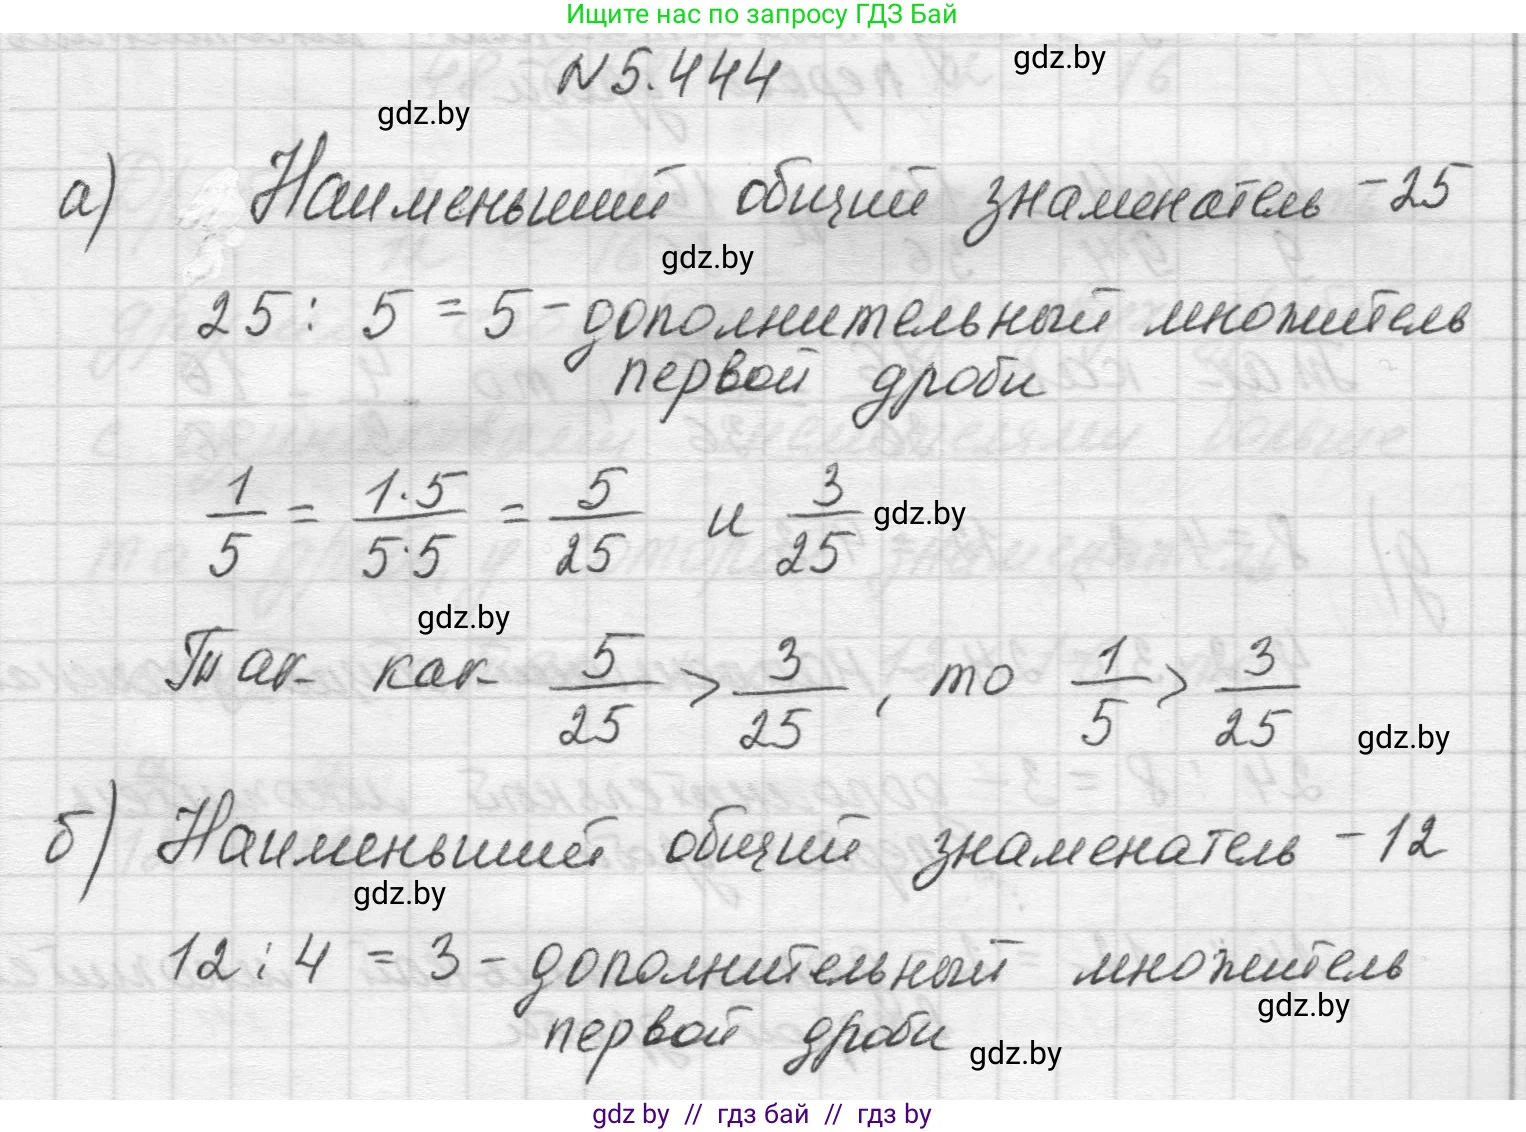 Ищите нас по запросу ГДЗ Бай
N 5.444
gdz.by
gdz.by
а) Наименьший общий знаменатель - 25
gdz.by
25 : 5 = 5 - дополнительный множитель
первой дроби
1/5 = 1·5/5·5 = 5/25 и 3/25 gdz.by
gdz.by
Так как 5/25 > 3/25, то 1/5 > 3/25
gdz.by
б) Наименьший общий знаменатель - 12
gdz.by
12 : 4 = 3 - дополнительный множитель
gdz.by
первой дроби gdz.by
gdz by // гдз бай // гдз by